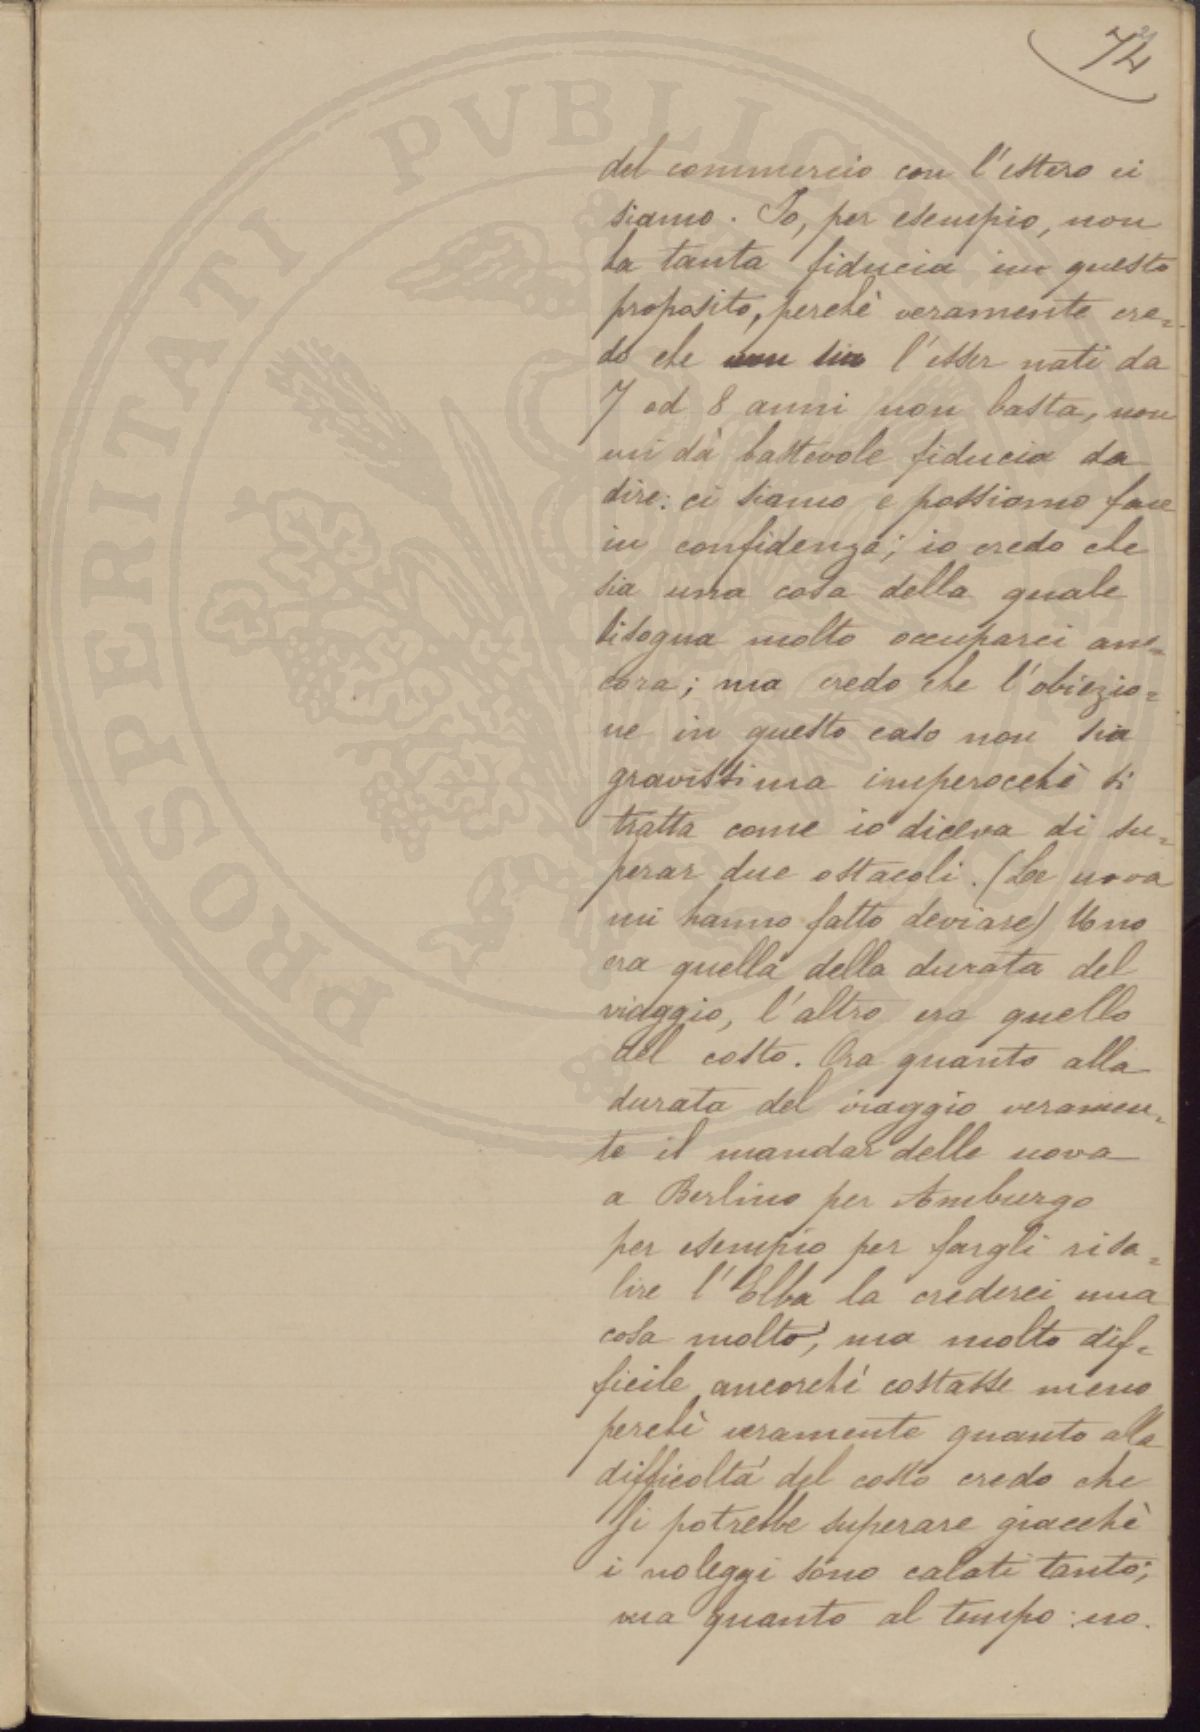 74
del commercio con l'estero ci
siamo. Io, per esempio, non
ha tanta fiducia in questo
proposito, perchè veramente cre=
do che non sia l'esser nati da
7 od 8 anni non basta, non
mi dà bastevole fiducia da
dire: ci siamo e possiamo fare
in confidenza; io credo che
sia una cosa della quale
bisogna molto occuparci anc=
cora; ma credo che l'obiezio=
ne in questo caso non sia
gravissima imperocchè si
tratta come io diceva di su=
perar due ostacoli. (Le uova
mi hanno fatto deviare) Uno
era quella della durata del
viaggio, l'altro era quello
del costo. Ora quanto alla
durata del viaggio veramen=
te il mandar delle uova
a Berlino per Amburgo
per esempio per fargli risa=
lire l'Elba la crederei una
cosa molto, ma molto dif=
ficile ancorchè costasse meno
perchè veramente quanto alla
difficoltà del costo credo che
si potrebbe superare giacchè
i noleggi sono calati tanto;
ma quanto al tempo: no.
PROSPERITATI PVBLIC